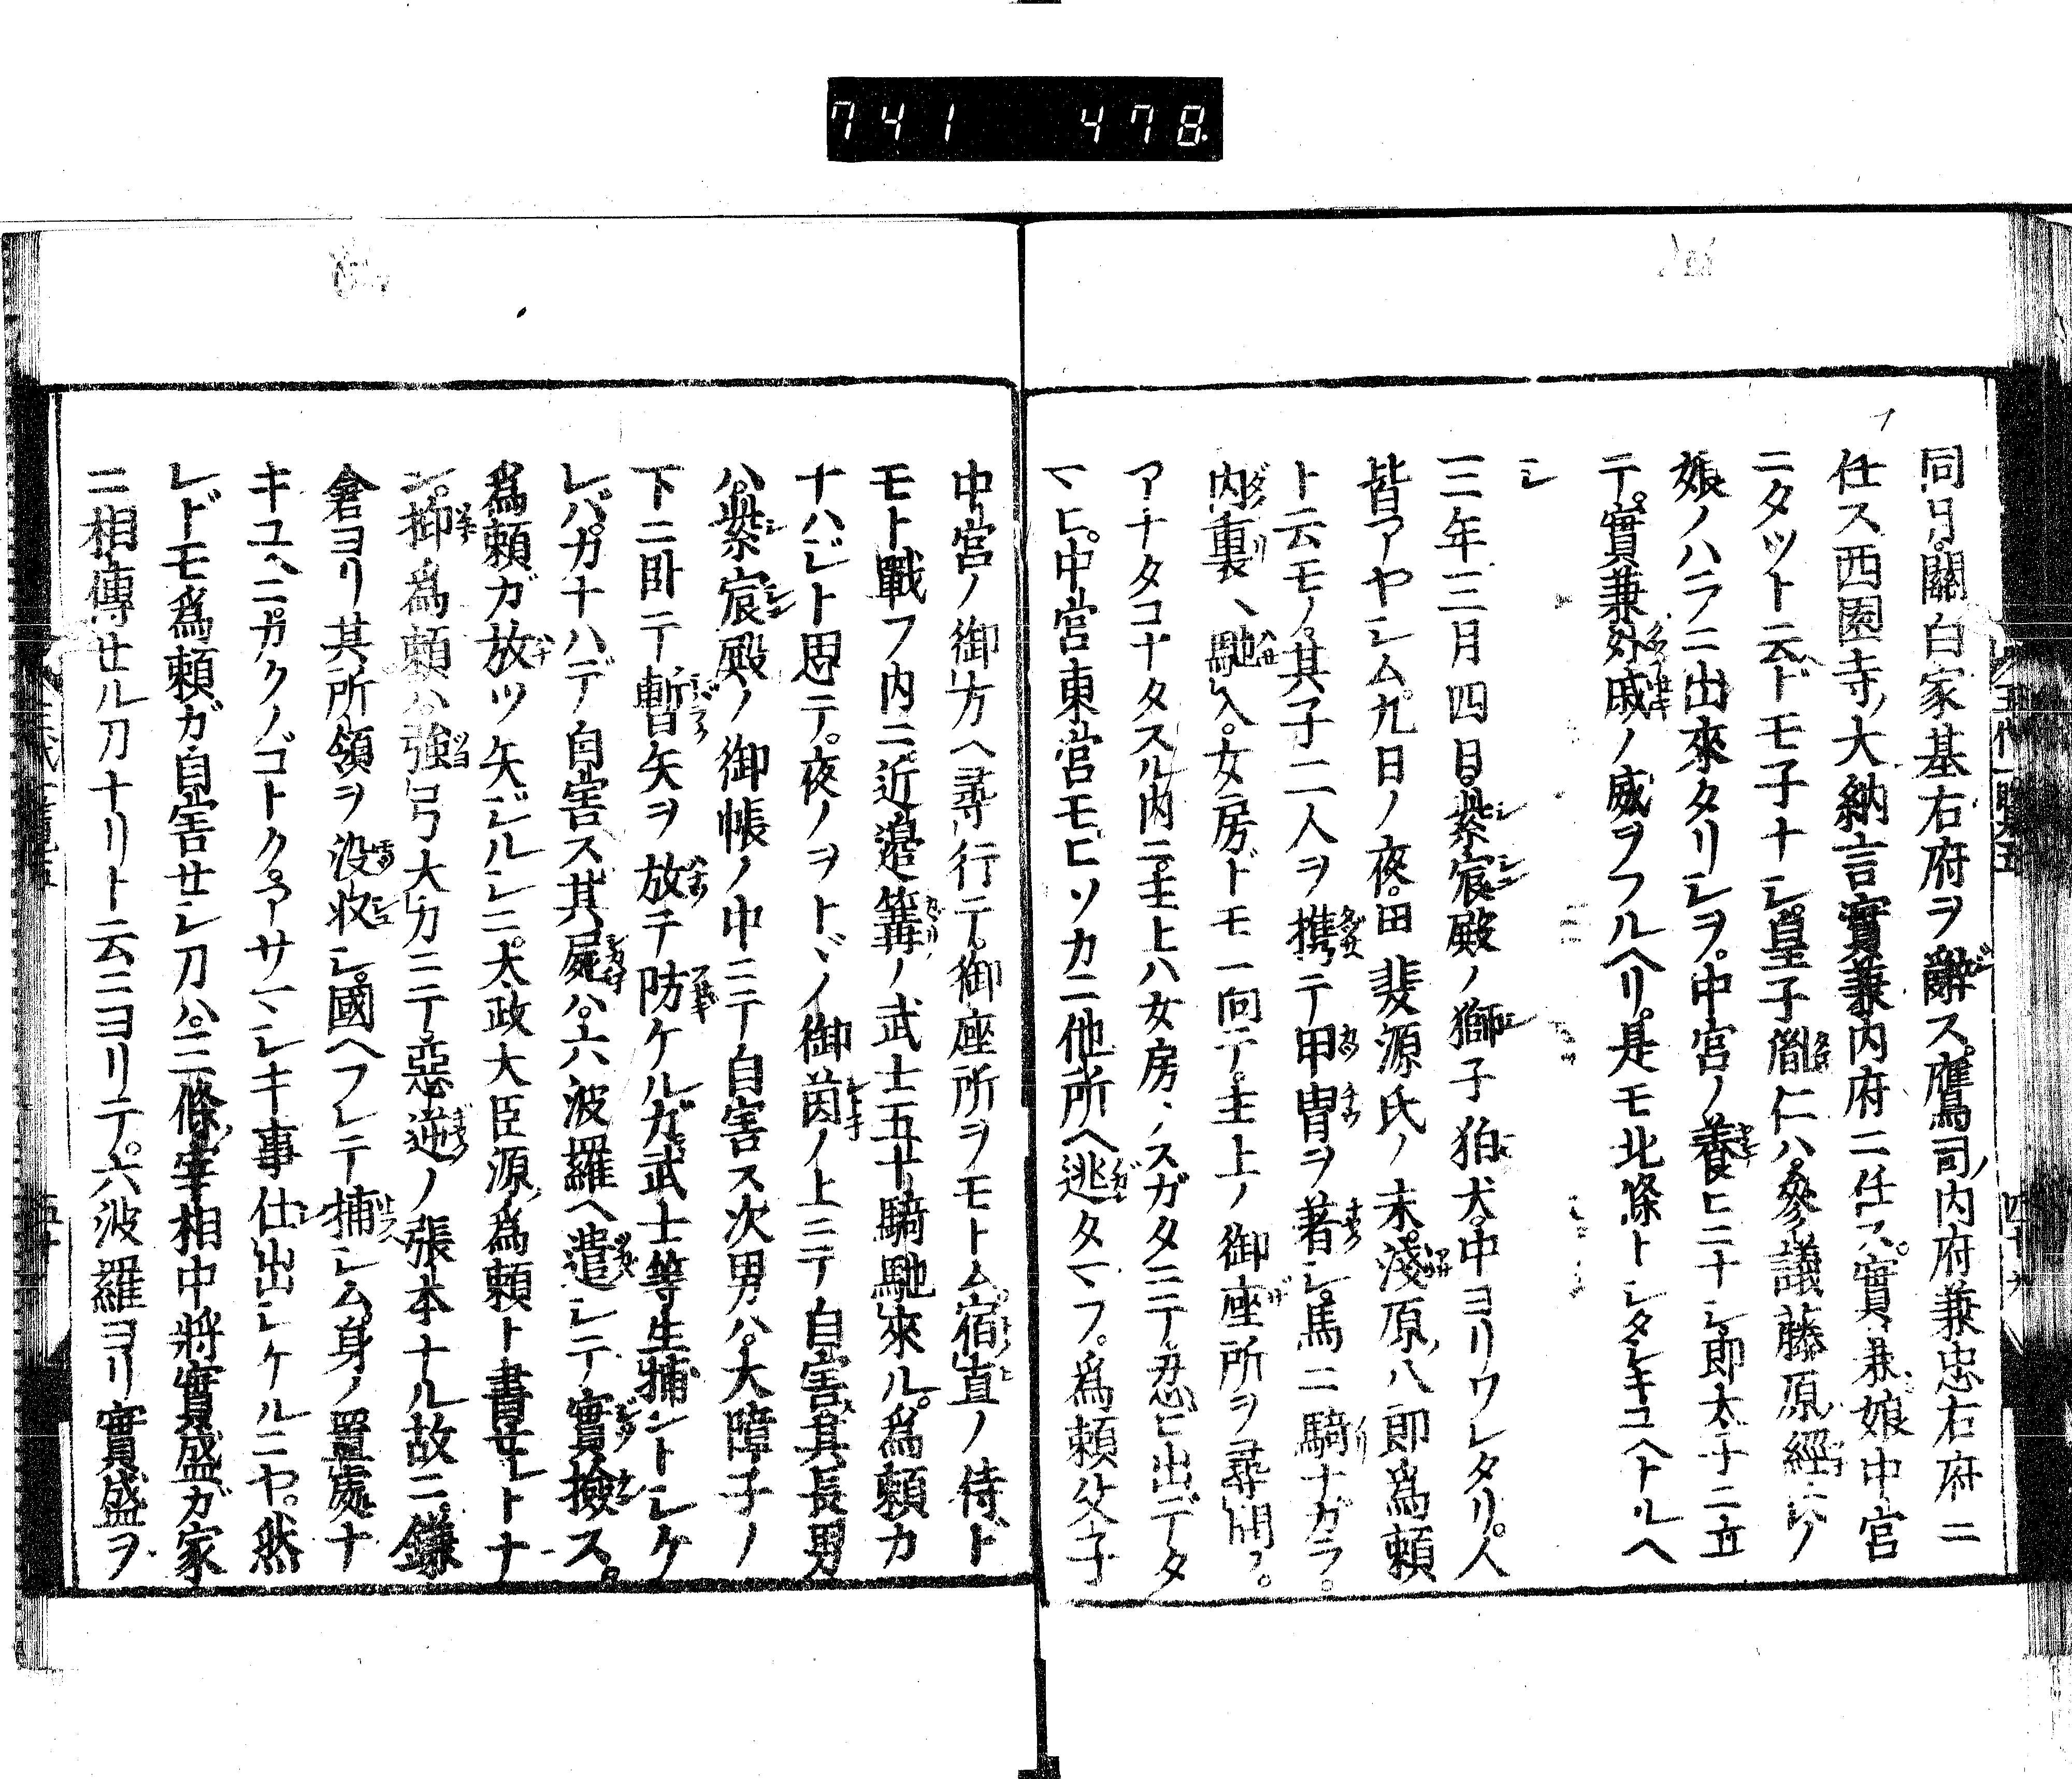 741 478
同月。關白家基右府ヲ辭ス。鷹司ノ内府兼忠右府ニ
任ス西園寺ノ大納言實兼内府ニ任ス。實兼娘中宮
ニタツト云ヘドモ子ナシ。皇子胤仁ハ參議藤原ノ經ノ
娘ノハラニ出來タリシヲ。中宮ノ養ヒニナシ節太子ニ立
テ。實兼外戚ノ威ヲフルヘリ。是モ北條トシタシキユヘトルヘ
シ
三年三月四日。紫宸殿ノ獅子狛犬。中ヨリワレタリ。人
皆アヤシム。九日ノ夜。甲斐源氏ノ末。淺原ノ八郎爲頼
ト云モノ。其子二人ヲ携テ甲冑ヲ著シ。馬ニ騎ナガラ。
内裏ヘ馳入。女房ドモ一向テ。主上ノ御座所ヲ尋問フ。
アナタコナタスル内ニ。主上ハ女房ノスガタニテ。忍ビ出デタ
マヒ。中宮東宮モヒソカニ他所ヘ逃タマフ。爲頼父子
中宮ノ御方ヘ尋行テ。御座所ヲモトム。宿直ノ侍ド
モト戰フ内ニ近邉篝ノ武士五十騎馳來ル。爲頼カ
ナハジト思テ。夜ノヲトヾノ御茵ノ上ニテ自害。其長男
ハ。紫宸殿ノ御帳ノ中ニテ自害ス次男ハ。大障子ノ
下ニ臥テ暫矢ヲ放チ防ケルガ。武士等生捕ントシケ
レバ。カナハデ自害ス其屍ハ。六波羅ヘ遣シテ實撿ス。
爲頼ガ放ツ矢ジルシニ。太政大臣源ノ爲頼ト書せシトナ
ン。抑爲頼ハ強弓大力ニテ惡逆ノ張本ナル故ニ。鎌
倉ヨリ其所領ヲ没收シ。國ヘフレテ捕シム。身ノ置處ナ
キユヘニ。カクノゴトクアサマシキ事仕出シケルニヤ。然
レドモ爲頼ガ自害せシ刀ハ。三條ノ宰相中將實盛ガ家
ニ相傳せル刀ナリト云ニヨリテ。六波羅ヨリ實盛ヲ